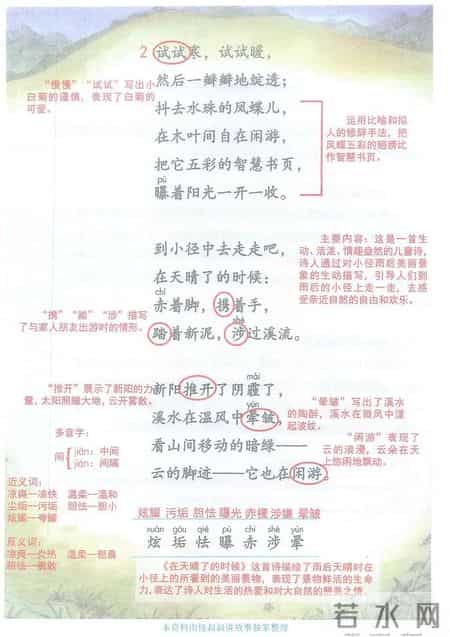 2 试试寒，试试暖，
然后一瓣瓣地绽透；
抖去水珠的凤蝶儿，
在木叶间自在闲游，
把它五彩的智慧书页，
pù
曝着阳光一开一收。
“慢慢”“试试”写出小
白菊的谨慎，表现了白菊的
可爱。
运用比喻和拟
人的修辞手法，把
凤蝶五彩的翅膀比
作智慧书页。
到小径中去走走吧，
在天晴了的时候：
chì
赤着脚，携着手，
shè
踏着新泥，涉过溪流。
主要内容：这是一首生
动、活泼、情趣盎然的儿童诗，
诗人通过对小径雨后美丽景
象的生动描写，引导人们到
雨后的小径上走一走，去感
受亲近自然的自由和欢乐。
“携”“踏”“涉”描写
了与家人朋友出游时的情形。
mái
新阳推开了阴霾了，
yùn
溪水在温风中晕皱，
看山间移动的暗绿——
云的脚迹——它也在闲游。
“推开”展示了新阳的力
量，太阳照耀大地，云开雾散。
“晕皱”写出了溪水
的陶醉，溪水在微风中漾
起波纹。
“闲游”表现了
云的浪漫，云朵在天
上悠闲地飘动。
多音字：
间 jiān：中间
jiàn：间隔
近义词：
凉爽—凉快 温柔—温和
尘垢—污垢 胆怯—胆小
炫耀—夸耀
反义词：
凉爽—炎热 温柔—粗暴
胆怯—勇敢
炫耀 污垢 胆怯 曝光 赤裸 涉嫌 晕皱
xuàn gòu qiè pù chì shè yùn
炫 垢 怯 曝 赤 涉 晕
《在天晴了的时候》这首诗描绘了雨后天晴时在
小径上的所看到的美丽景物，表现了景物鲜活的生命
力，表达了诗人对生活的热爱和对大自然的赞美之情。
若水网